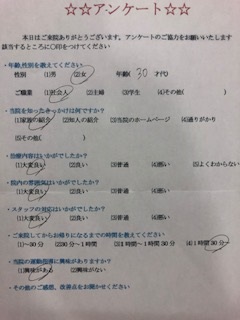 ☆☆アンケート☆☆
本日はご来院ありがとうございます。アンケートのご協力をお願いいたします
該当するところに〇印をつけてください
・年齢,性別を教えてください
性別 (1)男 (2)女 年齢( 30 才代)
ご職業 (1)社会人 (2)主婦 (3)学生 (4)その他( )
・当院を知ったきっかけは何ですか?
(1)家族の紹介 (2)知人の紹介 (3)当院のホームページ (4)通りがかり
(5)その他( )
・治療内容はいかがでしたか?
(1)大変良い (2)良い (3)普通 (4)悪い (5)よくわからない
・院内の雰囲気はいかがでしたか?
(1)大変良い (2)良い (3)普通 (4)悪い
・スタッフの対応はいかがでしたか?
(1)大変良い (2)良い (3)普通 (4)悪い
・ご来院してからお帰りになるまでの時間を教えてください
(1)~30分 (2)30分~1時間 (3)1時間~1時間30分 (4)1時間30分~
・当院の運動指導に興味がありますか?
(1)興味がある (2)興味がない
・その他のご感想、改善点をお聞かせください